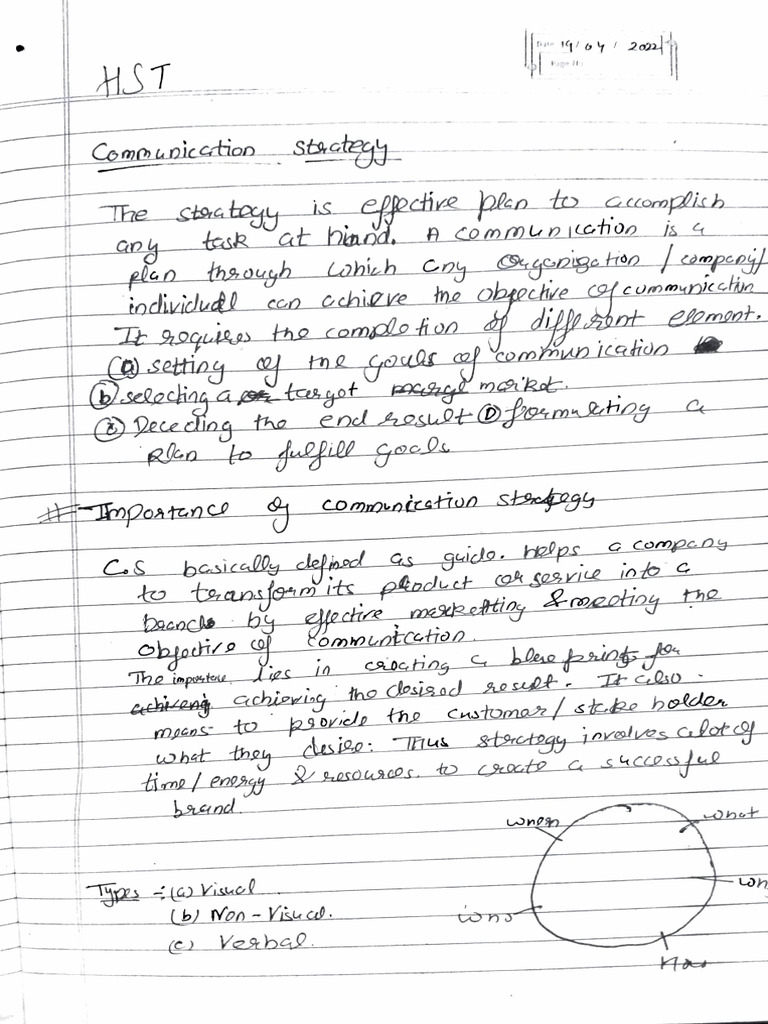 Date 19/04/2022
Page No
HST
Communication strategy
The strategy is effective plan to accomplish
any task at hand. A communication is a
plan through which any organization / company/
individual can achieve the objective of communication
It requires the completion of different element.
(a) setting of the goals of communication
(b) selecting a target market.
(c) Deceding the end result (D) formulating a
plan to fulfill goals
# Importance of communication strategy
C.S basically defined as guide. Helps a company
to transform its product or service into a
brand by effective marketting & meeting the
objective of communication.
The importance lies in creating a blue print for
achieving the desired result. It also
means to provide the customer/stake holder
what they desire: Thus strategy involves a lot of
time/energy & resources to create a successful
brand.
when
what
Types :- (a) Visual
(b) Non-Visual.
(c) Verbal.